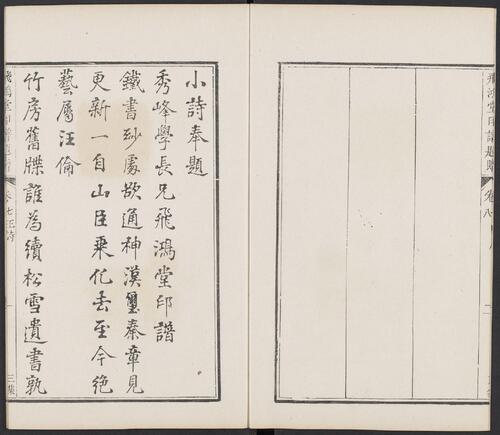 飛鴻堂印譜題
卷八
小詩奉題
秀峰學長兄飛鴻堂印譜
鐵書玅處欲通神漢璽秦章見
更新一自山臣乗化去至今絶
藝屬汪倫
竹房舊牒誰為續松雪遺書孰
飛鴻堂印譜題詩
卷七汪詩
一
三集